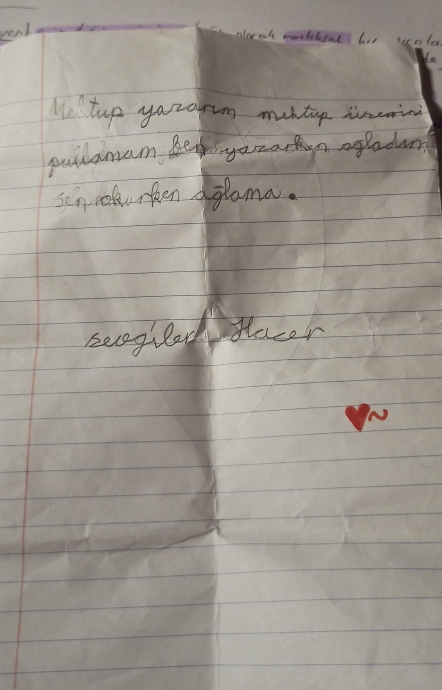 olarak varlıksal bir
Mektup yazarım mektup üzerini
pullamam, ben yazarken ağladım
sen okurken ağlama.
sevgiler Hacer